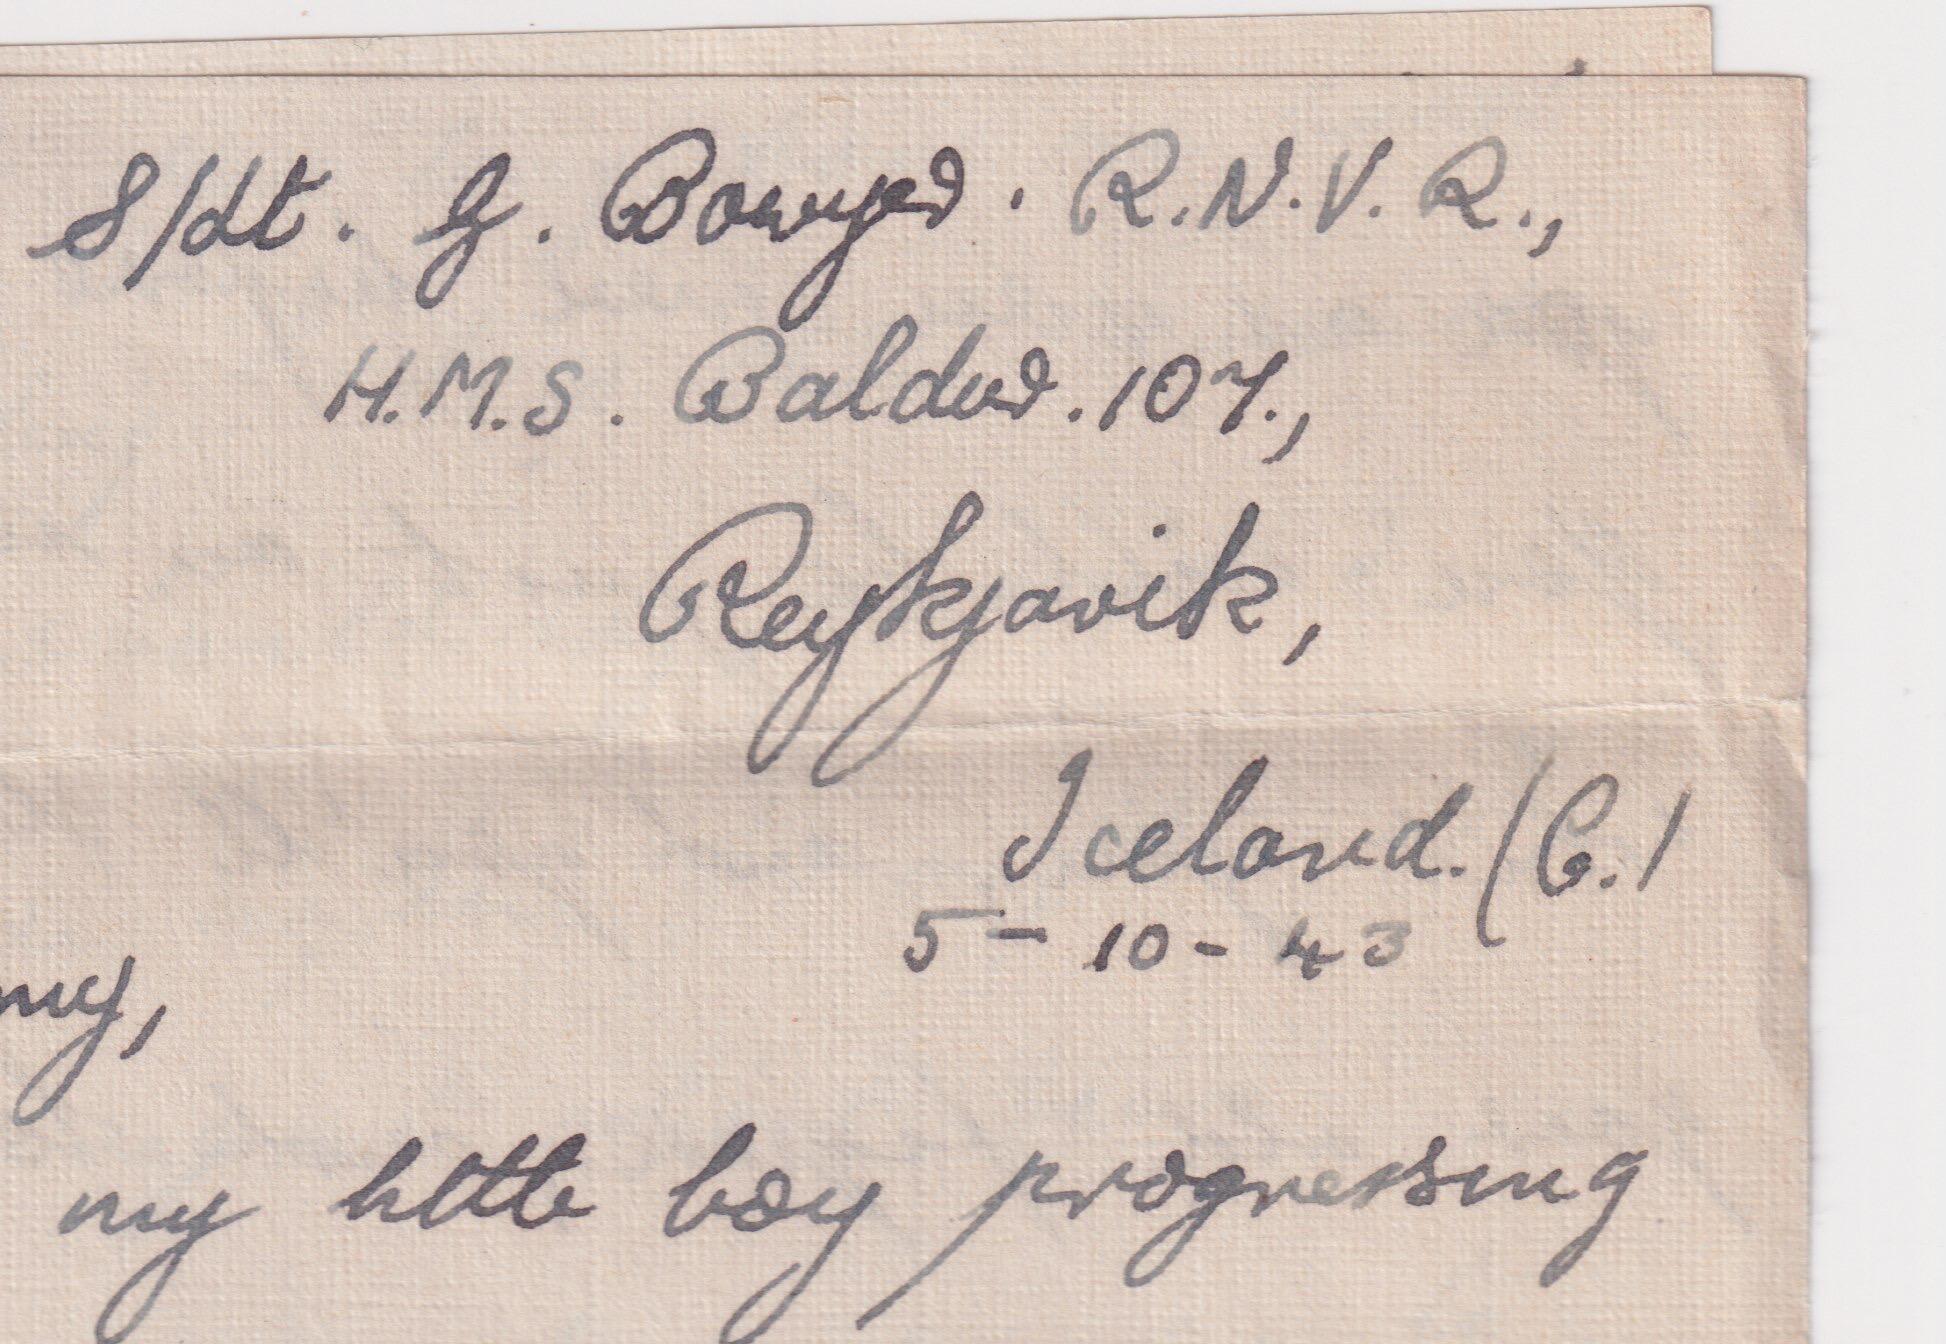 S/Lt. G. Bowyer. R.N.V.R.,
H.M.S. Baldur. 107.,
Reykjavik,
Iceland. (C.)
5 - 10 - 43
my,
my little boy progressing